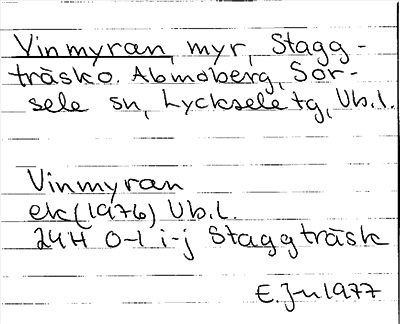 Vinmyran, myr, Stagg-
träsk o. Abmoberg, Sor-
sele sn, Lycksele tg, Vb.l.
Vinmyran
ek (1976) Vb.l.
24H 0-1 i-j Staggträsk
E. Ju 1977